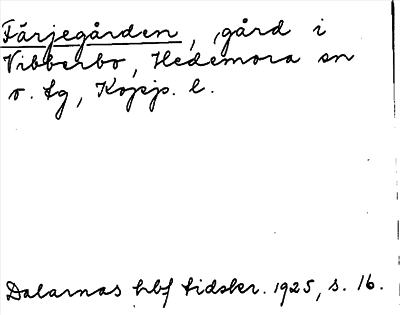 Färjegården, gård i
Vibberbo, Hedemora sn
o. tg, Kopp. l.
Dalarnas hbf tidskr. 1925, s. 16.